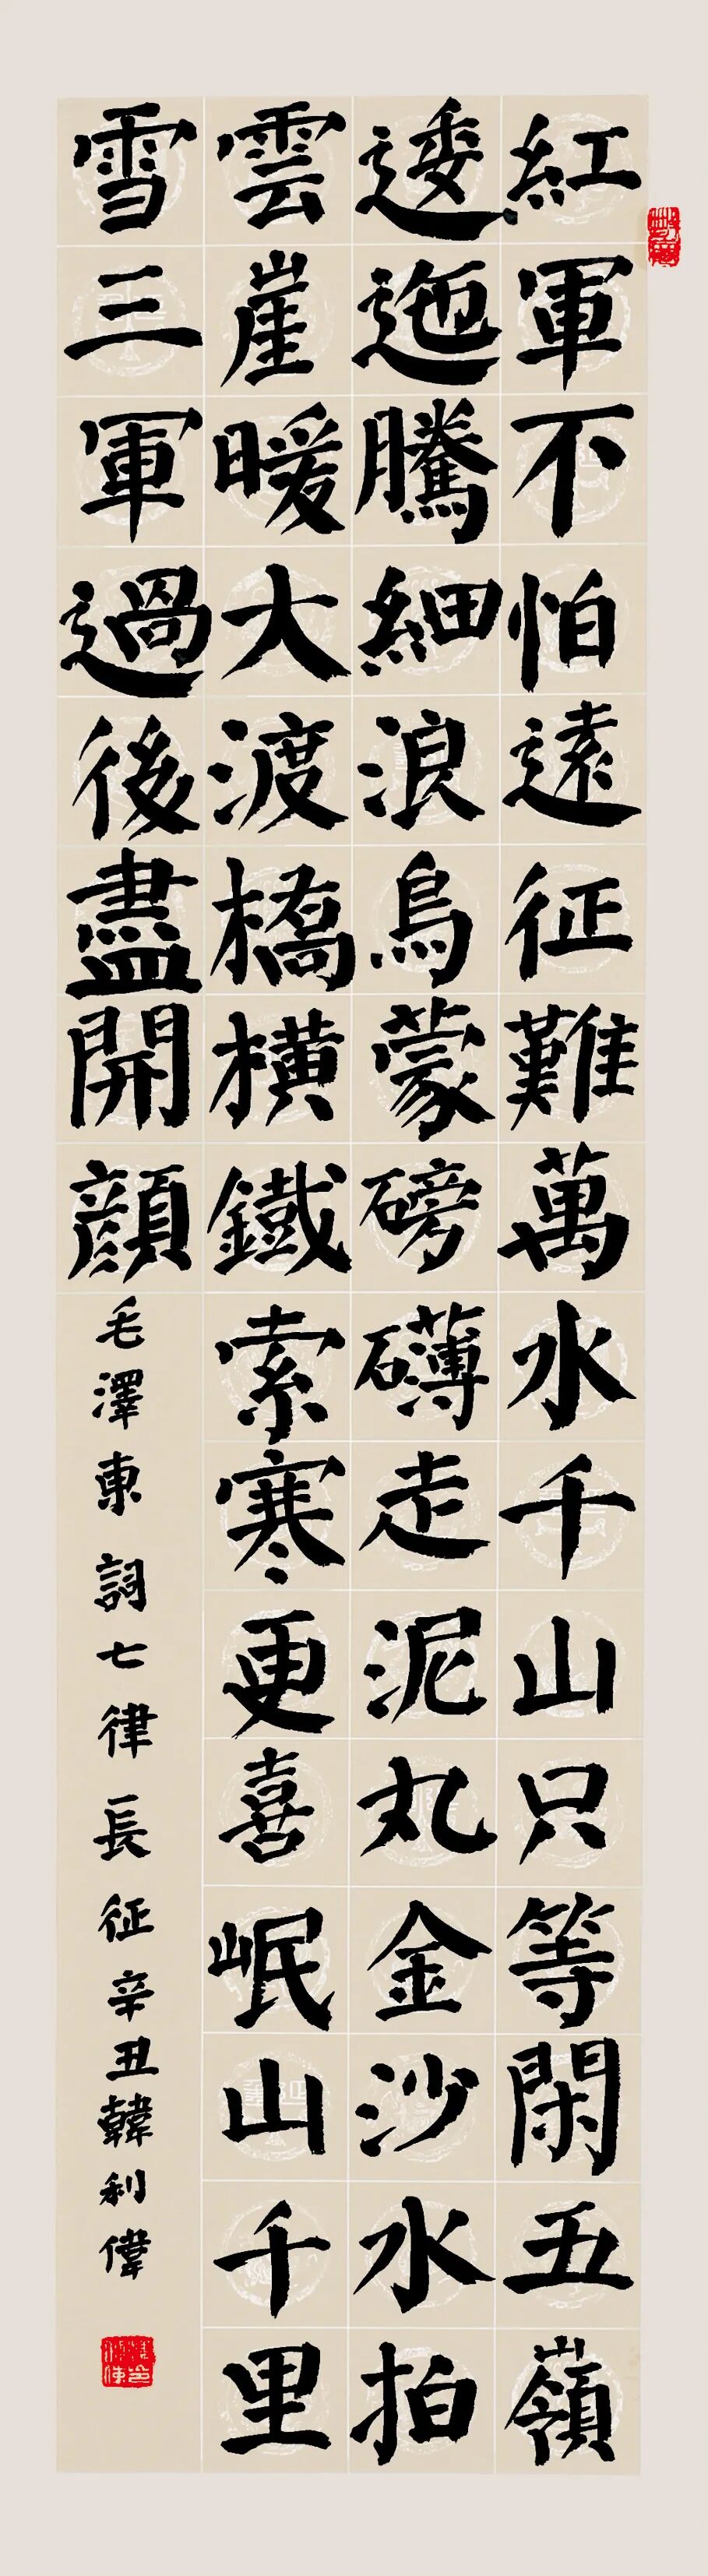 紅軍不怕遠征難萬水千山只等閑五嶺
逶迤騰細浪烏蒙磅礴走泥丸金沙水拍
雲崖暖大渡橋橫鐵索寒更喜岷山千里
雪三軍過後盡開顏
毛澤東詞七律長征辛丑韓利偉